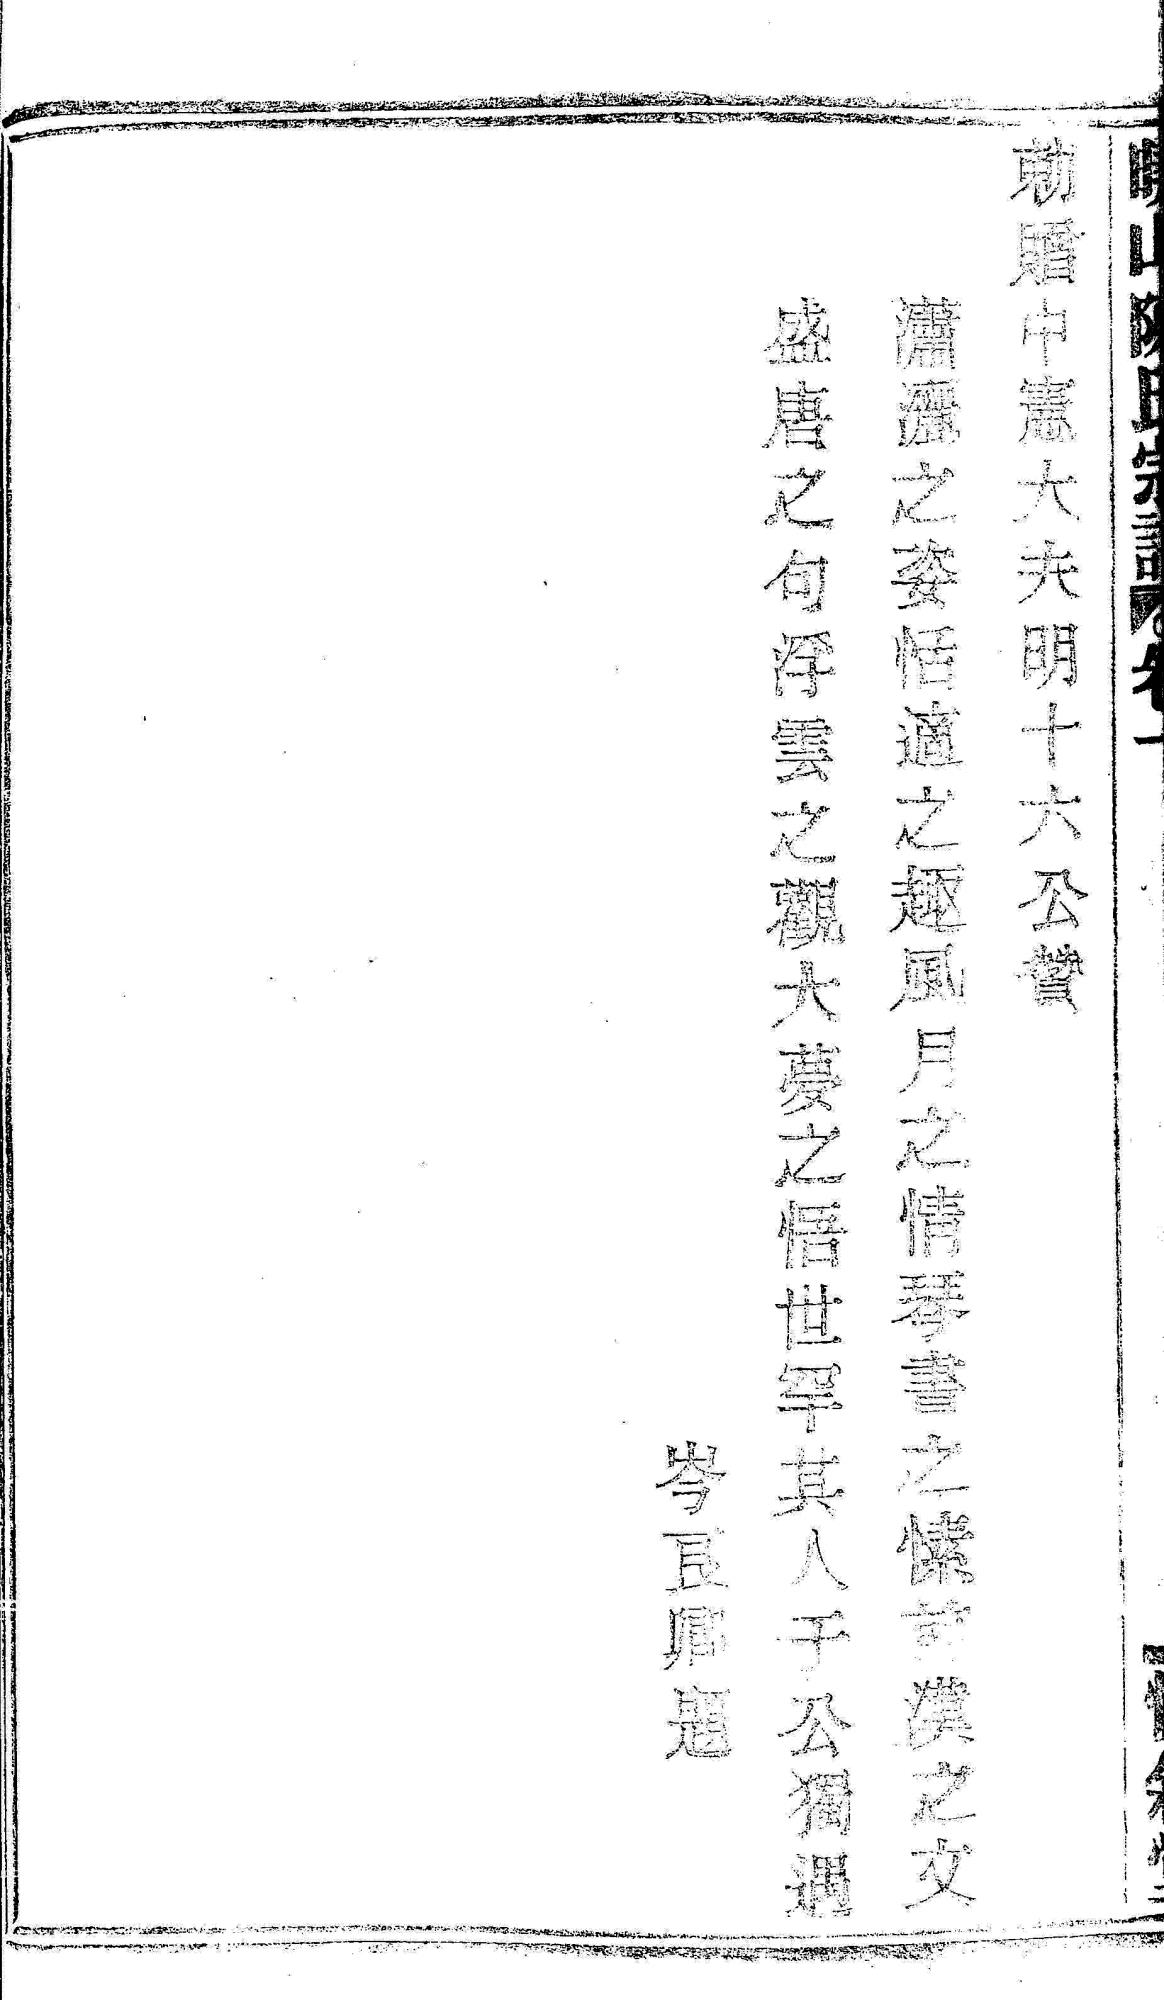 勅贈中憲大夫明十六公贊
瀟灑之姿恬適之趣風月之情琴書之愫前漢之文
盛唐之句浮雲之觀大夢之悟世罕其人于公獨遇
岑良卿題